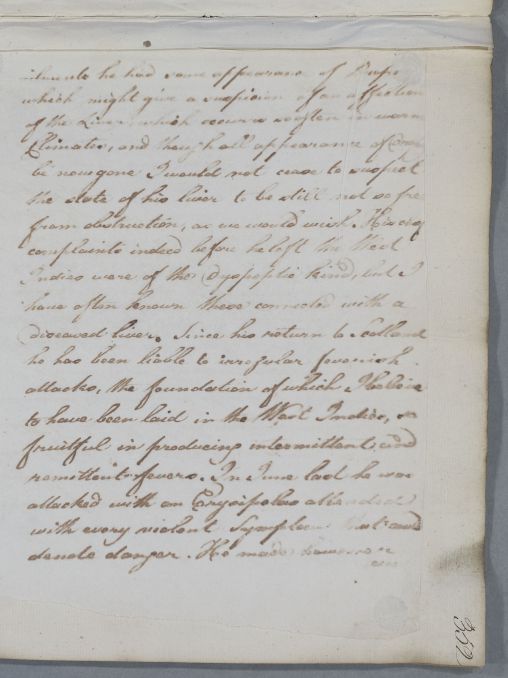 he had some appearance of
which might give a suspicion of an affection
of the Liver which occurs so often in warm
Climates, and though all appearance of
be now gone I would not cease to suspect
the state of his liver to be still not so free
from obstruction, as we would wish. His
complaints indeed before he left the West
Indies were of the Dyspeptic kind, but I
have often known these connected with a
diseased liver. Since his return to Scotland
he has been liable to irregular feverish
attacks, the foundation of which I believe
to have been laid in the West Indies, so
fruitful in producing intermittent and
remittent fevers. In June last he was
attacked with an Erysipelas attended
with every violent Symptom that could
denote danger. He made however a
352